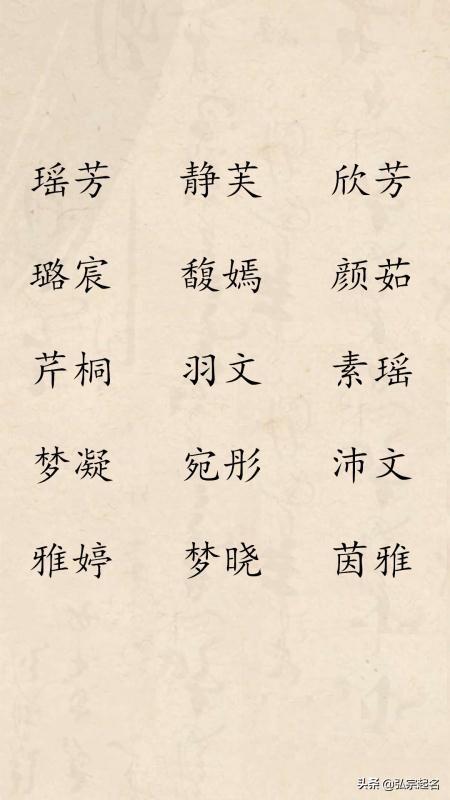 瑶芳 静芙 欣芳
璐宸 馥嫣 颜茹
芹桐 羽文 素瑶
梦凝 宛彤 沛文
雅婷 梦晓 茵雅
头条 @弘宗起名